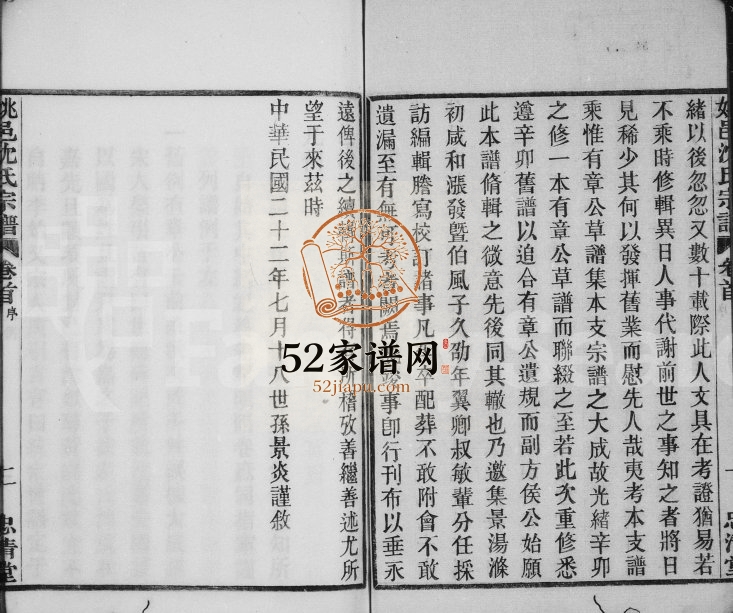 緒以後忽忽又數十載際此人文具在考證猶易若
不乘時修輯異日人事代謝前世之事知之者將日
見稀少其何以發揮舊業而慰先人哉夷考本支譜
乘惟有章公草譜集本支宗譜之大成故光緒辛卯
之修一本有章公草譜而聯綴之至若此次重修悉
遵辛卯舊譜以追合有章公遺規而副方侯公始願
此本譜脩輯之微意先後同其轍也乃邀集景湯滌
初咸和漲發暨伯風子久劭年翼卿叔敏輩分任採
訪編輯謄寫校訂諸事凡卒配葬不敢附會不敢
遺漏至有無可考者闕焉事卽行刊布以垂永
遠俾後之斯譜者得所稽攷善繼善述尤所
望于來茲時
中華民國二十二年七月十八世孫景炎謹敘
姚邑沈氏宗譜
卷首
序
二
忠清堂
52家谱网
52jiapu.com